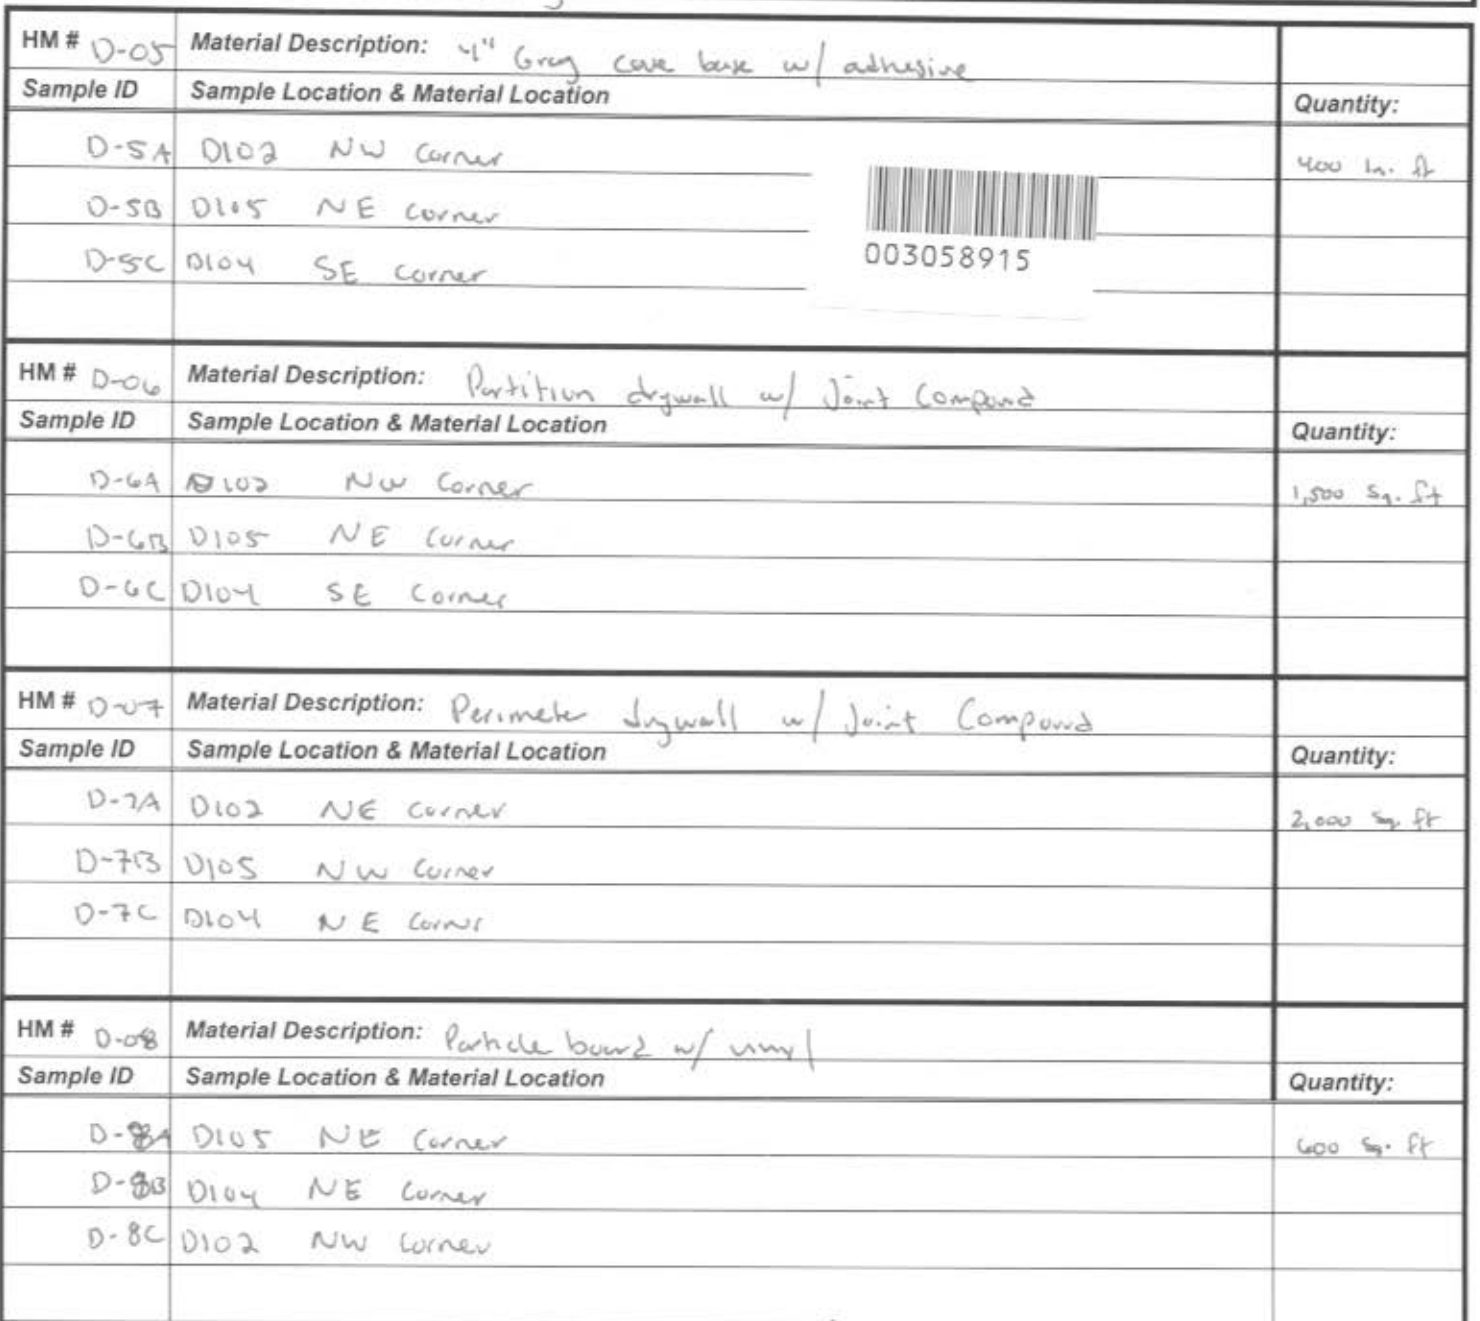 HM # D-05 Material Description: 4" Grey cove base w/ adhesive
Sample ID Sample Location & Material Location Quantity:
D-5A D102 NW Corner 400 ln. ft
D-5B D105 NE Corner
003058915
D-5C D104 SE Corner
HM # D-06 Material Description: Partition drywall w/ Joint Compound
Sample ID Sample Location & Material Location Quantity:
D-6A D102 NW Corner 1,500 Sq. ft
D-6B D105 NE Corner
D-6C D104 SE Corner
HM # D-07 Material Description: Perimeter drywall w/ Joint Compound
Sample ID Sample Location & Material Location Quantity:
D-7A D102 NE Corner 2,000 Sq. ft
D-7B D105 NW Corner
D-7C D104 NE Corner
HM # D-08 Material Description: Particle board w/ vinyl
Sample ID Sample Location & Material Location Quantity:
D-8A D105 NE Corner 600 Sq. ft
D-8B D104 NE Corner
D-8C D102 NW Corner